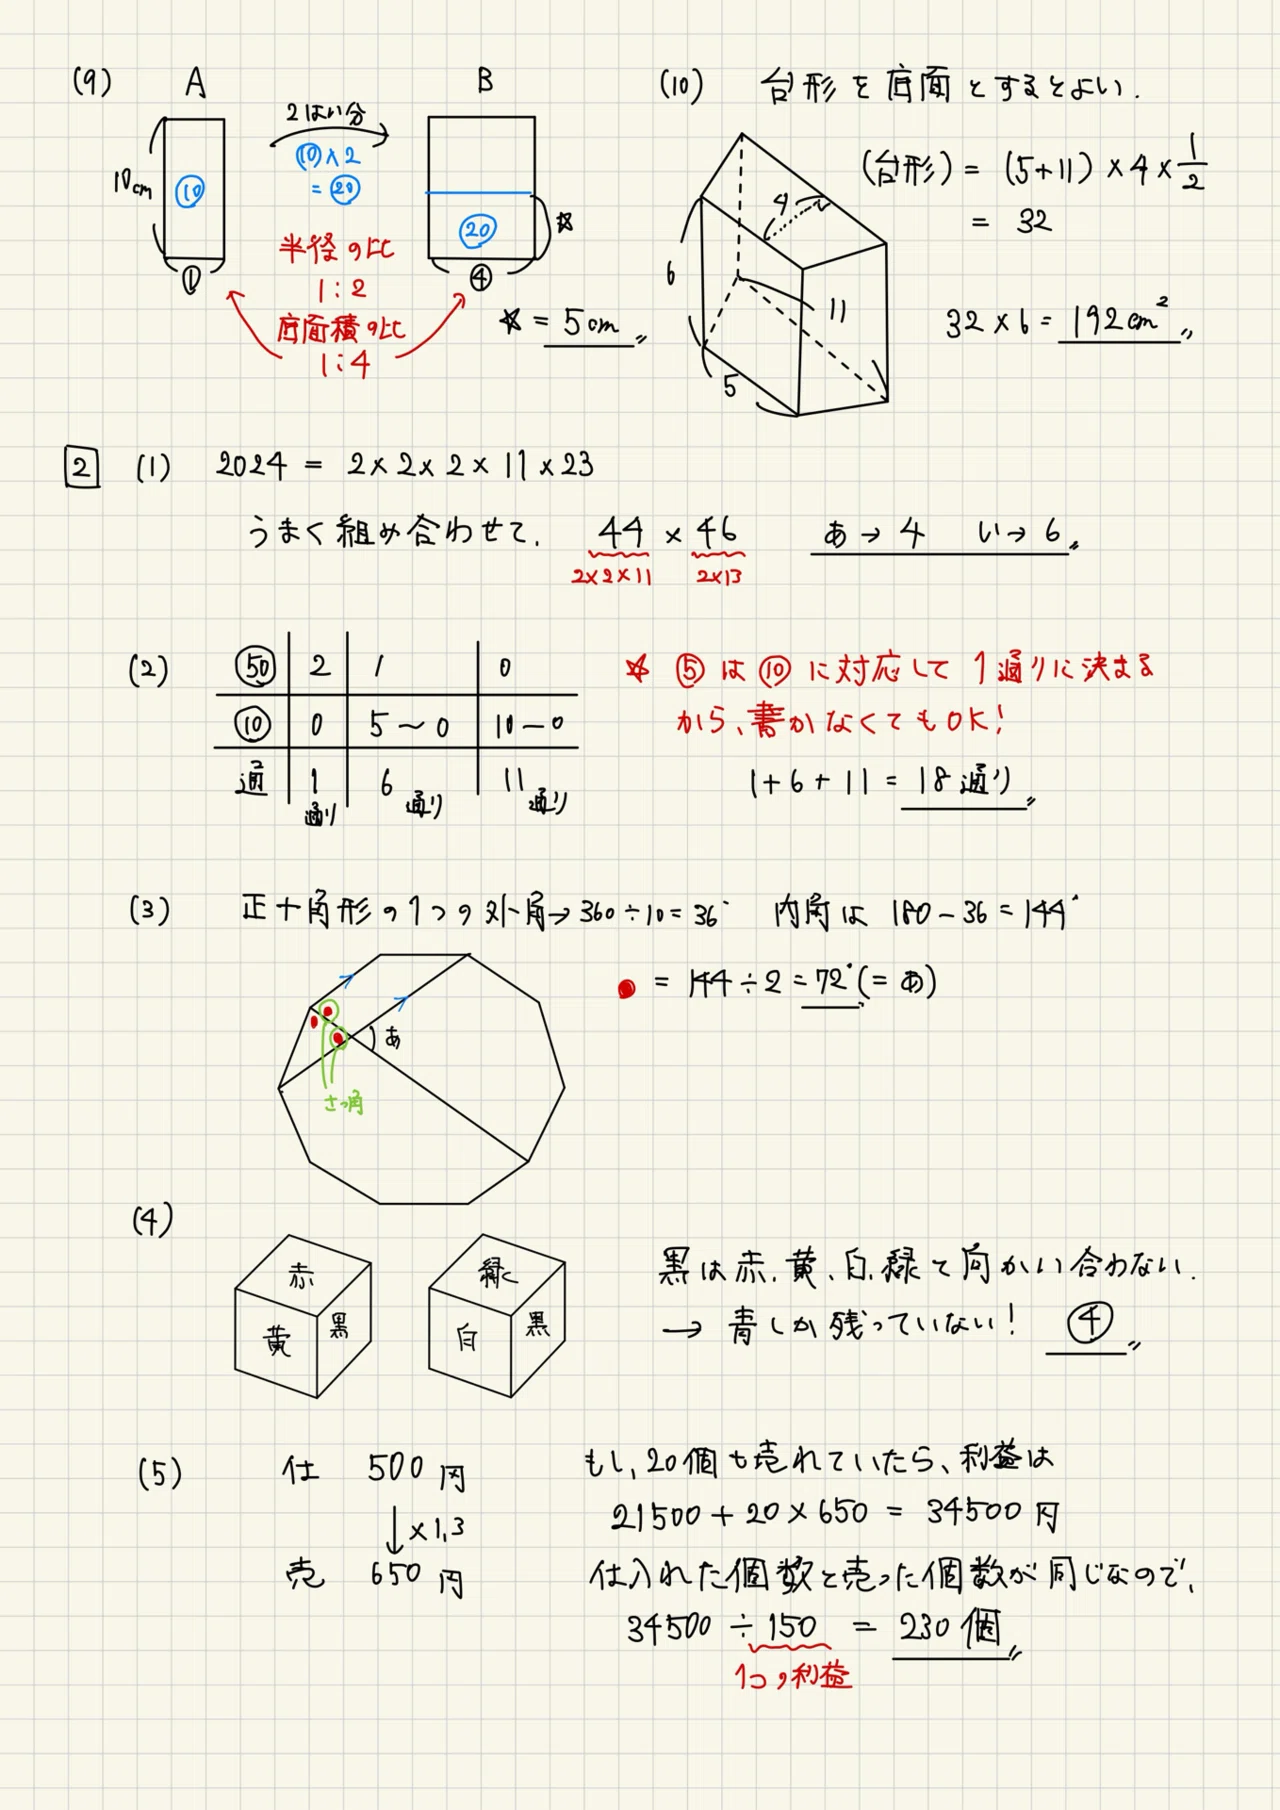 (9) A B
2はい分
⑩×2
= ⑳
10cm ⑩ ⑳ ☆
① ④
半径の比
1:2
底面積の比
1:4
☆ = 5cm
(10) 台形を底面とするとよい.
(台形) = (5+11) × 4 × 1/2
= 32
32 × 6 = 192cm²
4
6
11
5
2 (1) 2024 = 2×2×2×11×23
うまく組み合わせて、 44 × 46 あ→4 い→6
2×2×11 2×13
(2) ㊿ 2 1 0
⑩ 0 5〜0 10〜0
通 1通り 6通り 11通り
☆ ⑤は⑩に対応して1通りに決まる
から、書かなくてもOK!
1+6+11 = 18通り
(3) 正十角形の1つの外角→360÷10=36° 内角は 180-36=144°
● = 144÷2=72°(=あ)
あ
さっ角
(4)
赤 黄 黒
緑 白 黒
黒は赤、黄、白、緑と向かい合わない.
→ 青しか残っていない! ④
(5) 仕 500円
↓×1.3
売 650円
もし、20個も売れていたら、利益は
21500 + 20×650 = 34500円
仕入れた個数と売った個数が同じなので、
34500 ÷ 150 = 230個
1つの利益